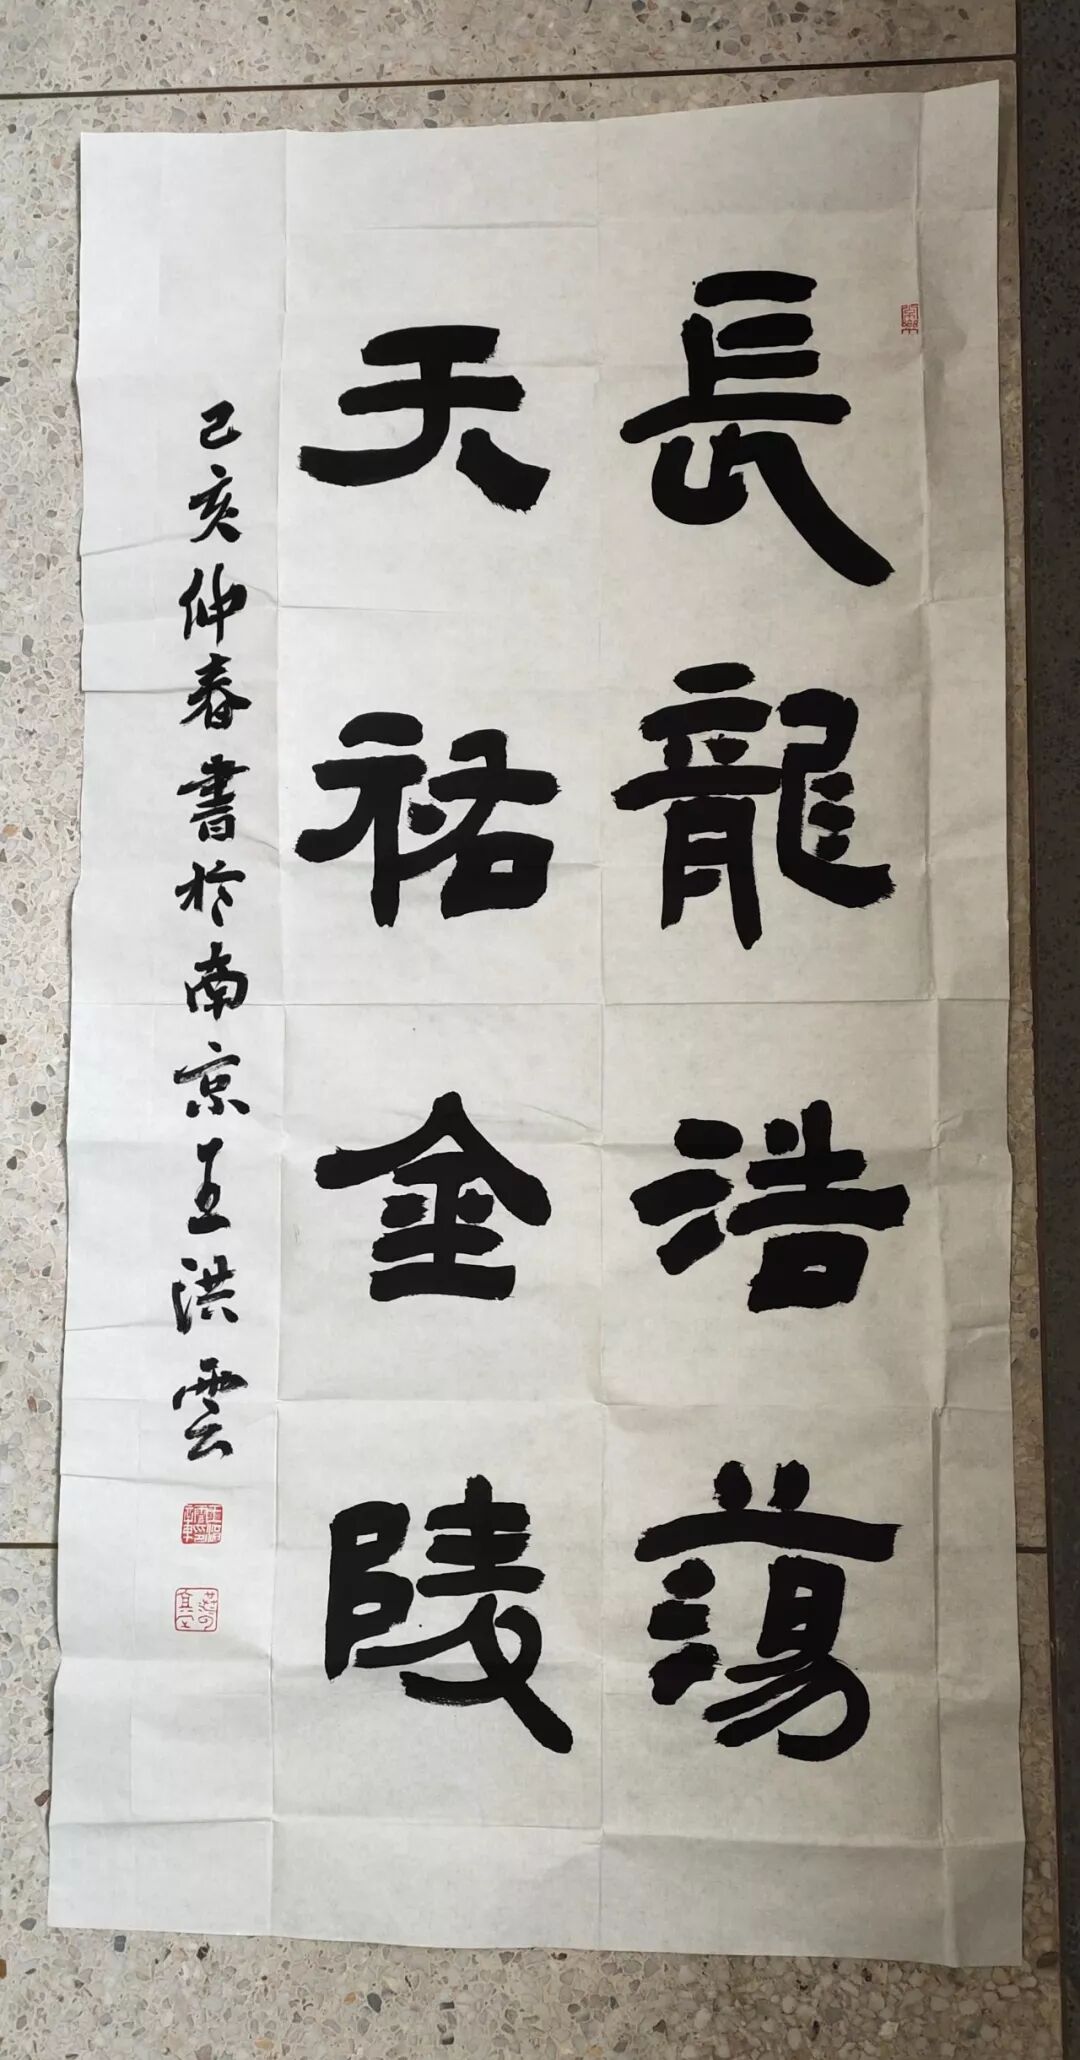 長龍浩蕩
天祐金陵
己亥仲春書於南京王洪雲